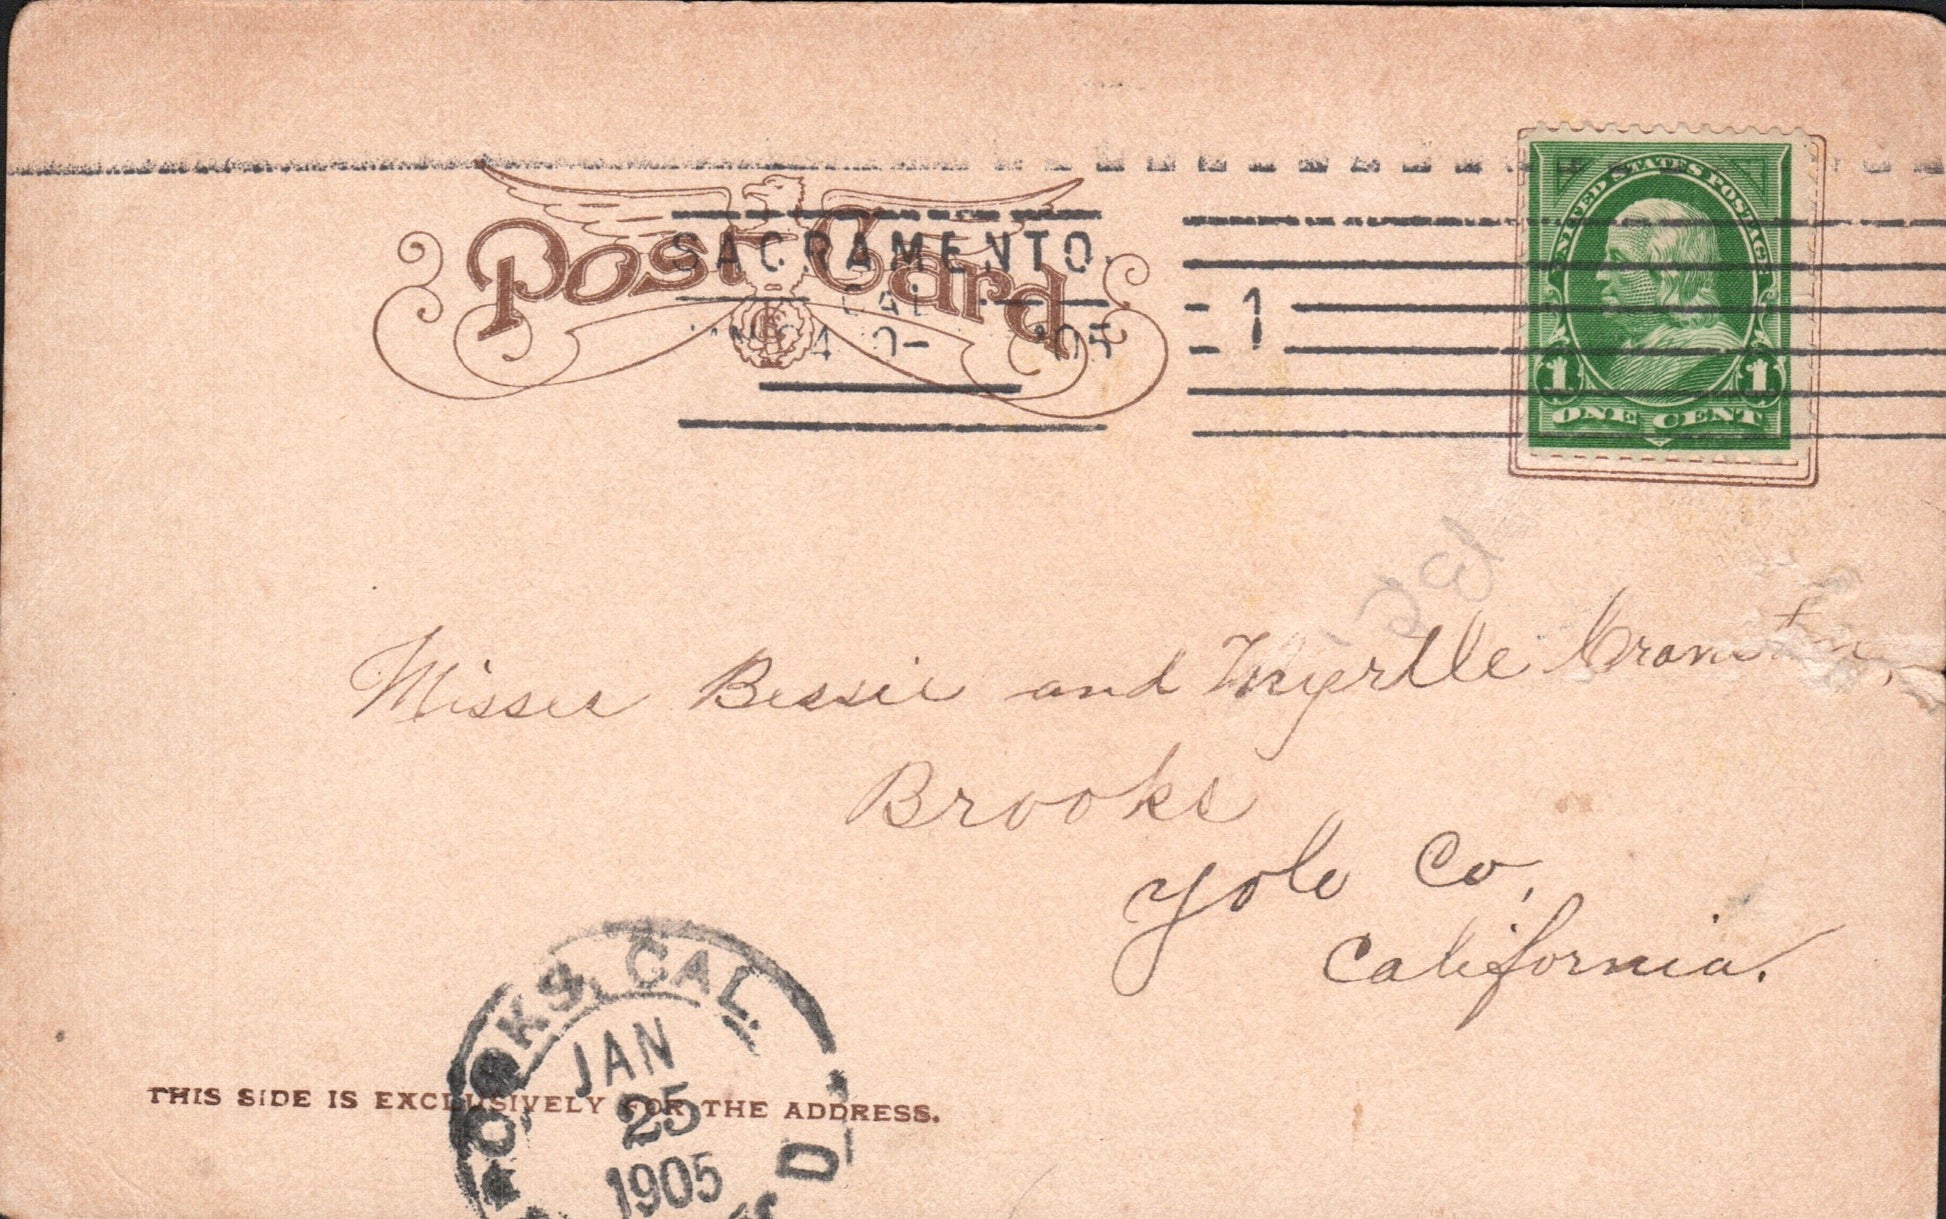 Post Card
SACRAMENTO.
CAL
1
'05
UNITED STATES POSTAGE
1 1
ONE CENT
Misses Bessie and Myrtle
Brooks
Yolo Co,
California.
OOKS, CAL.
JAN
25
1905
D
THIS SIDE IS EXCLUSIVELY FOR THE ADDRESS.